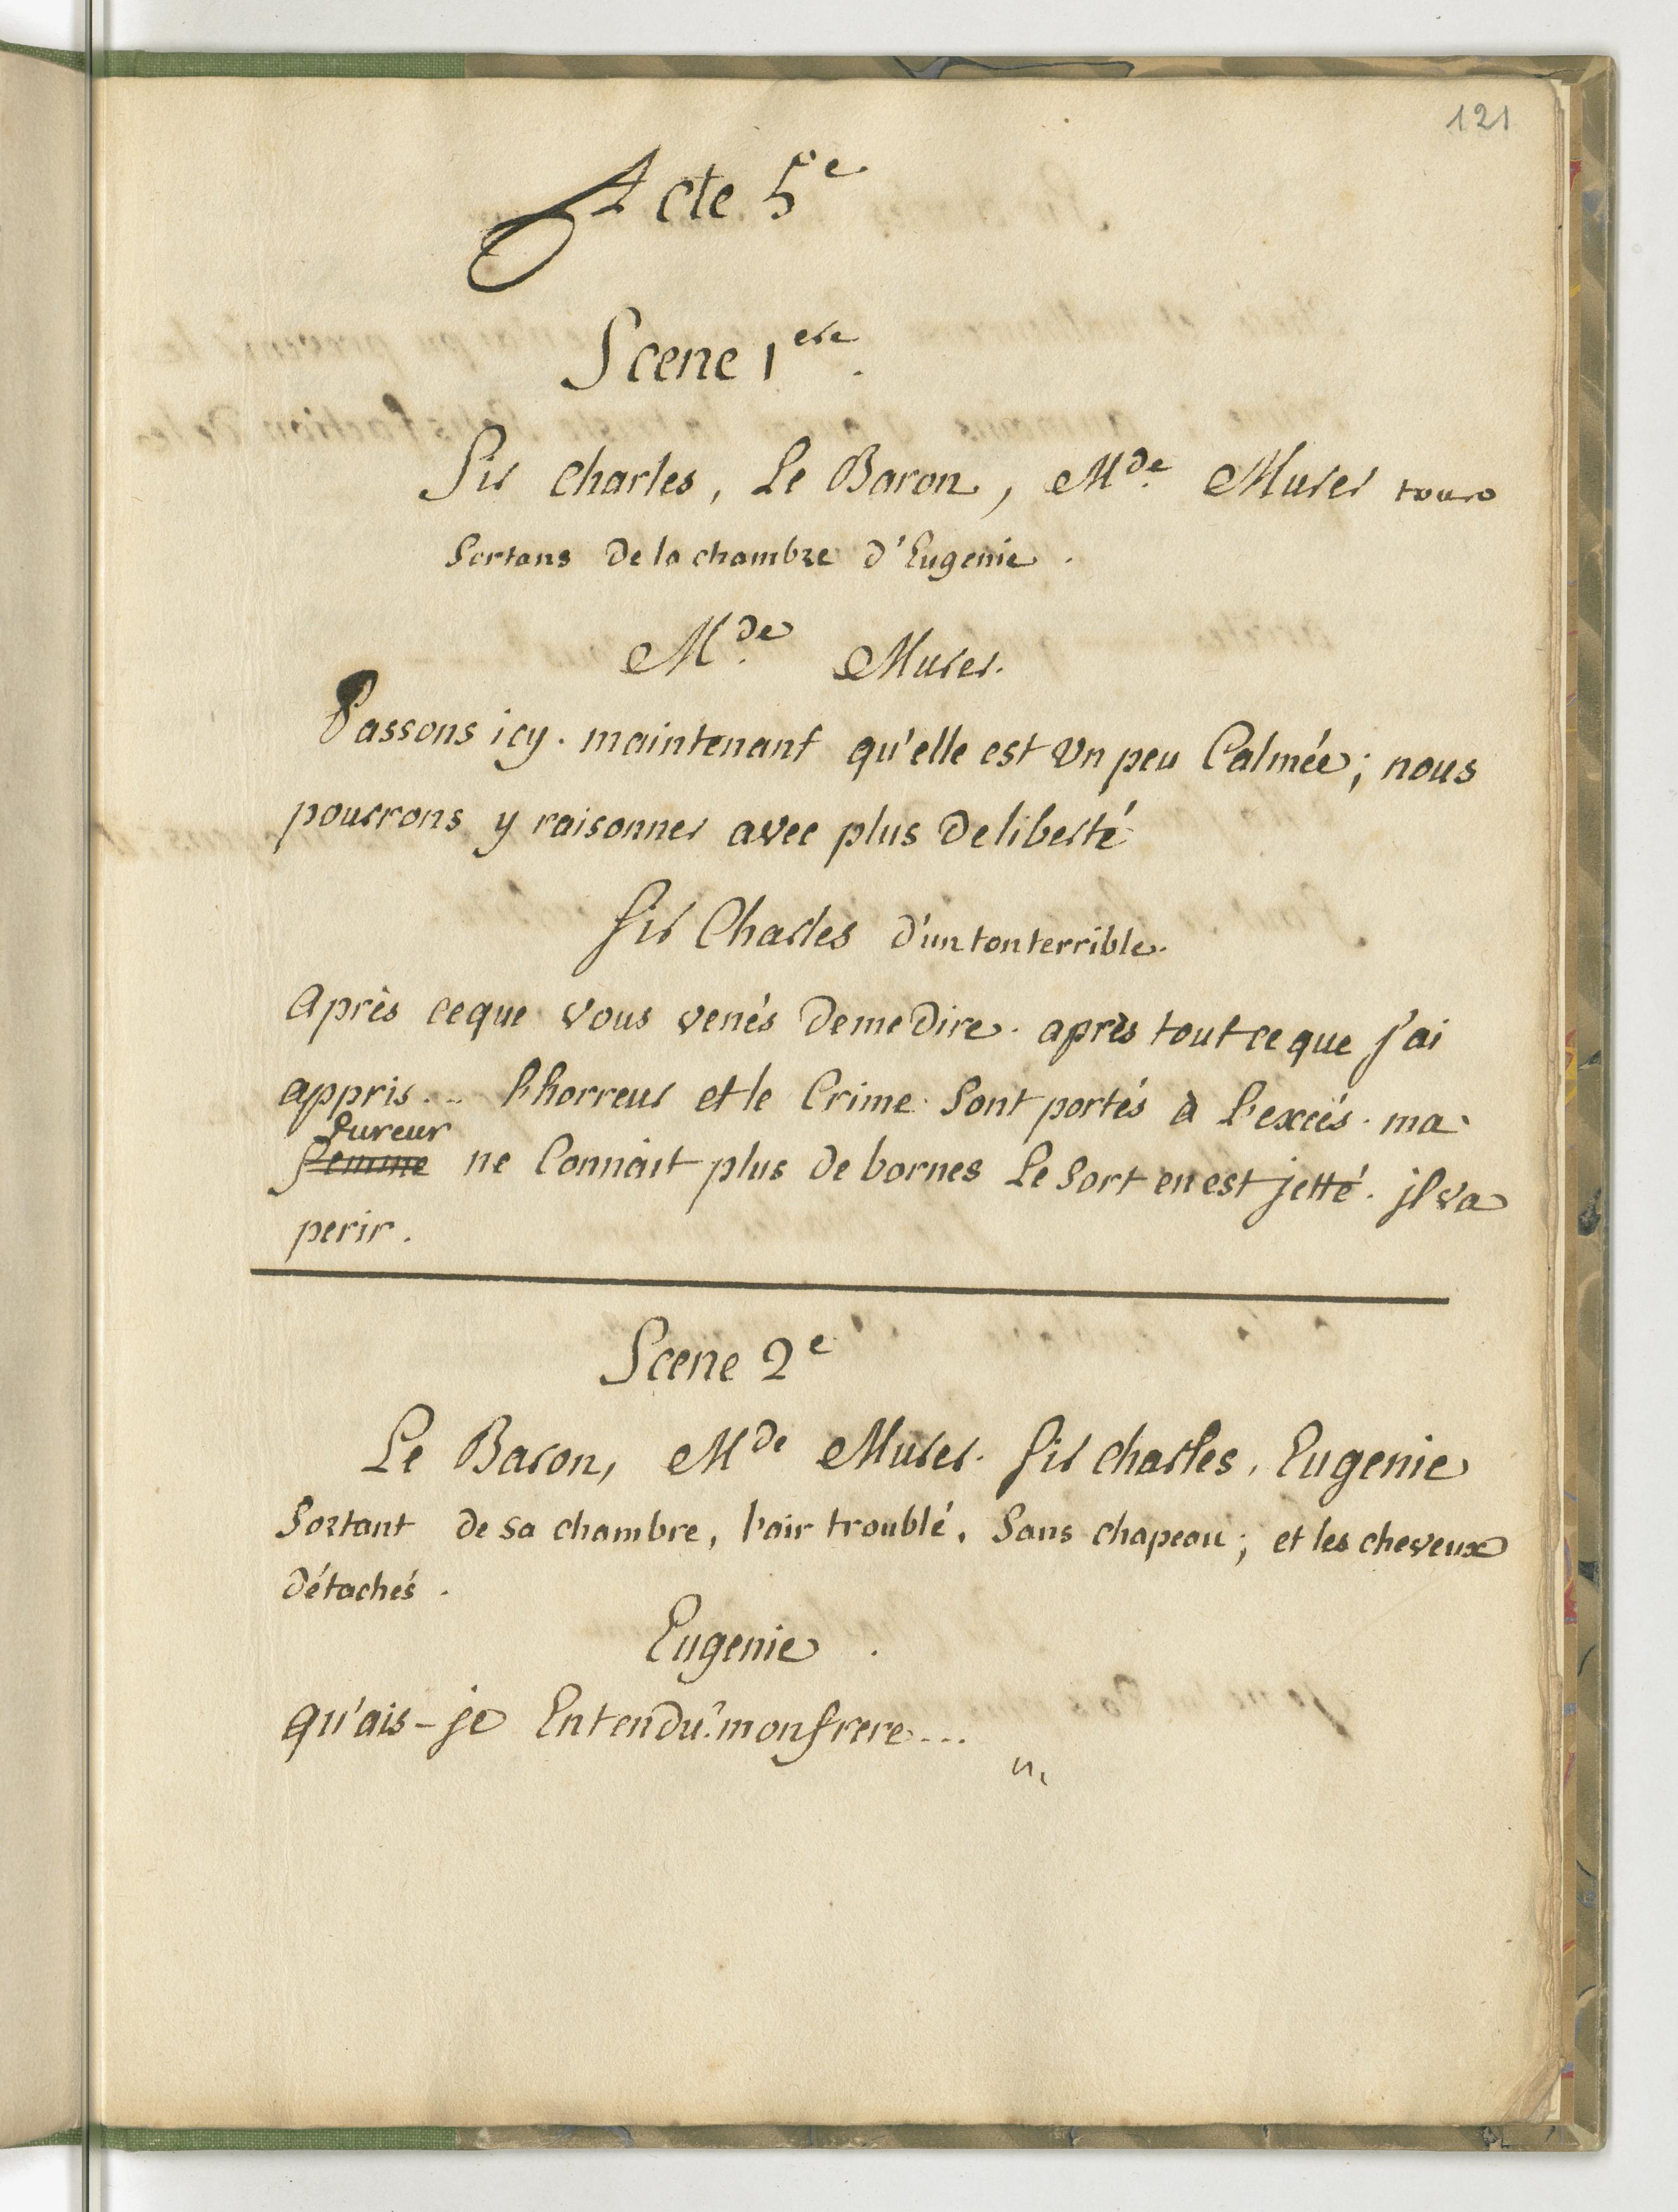 121
Acte 5e
Scene 1ere.
Sir Charles, Le Baron, Mde. Murer tous
Sortans de la chambre d'Eugenie.
Mde. Murer.
Passons icy. maintenant qu'elle est un peu Calmée; nous
pourrons y raisonner avec plus de liberté
Sir Charles d'un ton terrible.
Après ce que vous venés de me dire. après tout ce que j'ai
appris... l'horreur et le Crime Sont portés à l'excés. ma
fureur
femme ne Connait plus de bornes Le Sort en est jetté. jl va
perir.
Scene 2e
Le Baron, Mde Murer. Sir Charles, Eugenie
Sortant de sa chambre, l'air troublé, Sans chapeau; et les cheveux
détachés.
Eugenie.
qu'ais-je Entendu? mon frere...